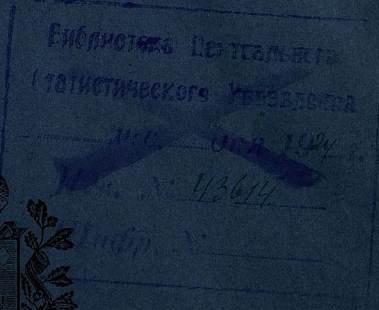 Библиотека Центсального
Статистического Управления
192 г.
Инв. № 43614
Шифр. №